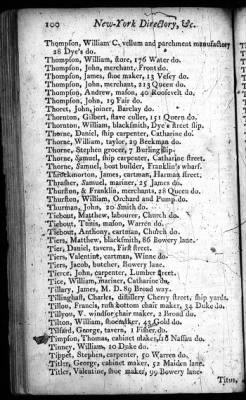 100 New-York Directory, &c.
Thompson, William C. vellum and parchment manufactory
28 Dye's do.
Thompson, William, store, 176 Water do.
Thompson, John, merchant, Front do.
Thompson, James, shoe maker, 13 Vesey do.
Thompson, John, merchant, 213 Queen do.
Thompson, Andrew, mason, 40 Roosevelt do.
Thompson, John, 19 Fair do.
Thoret, John, joiner, Barclay do.
Thornton, Gilbert, stare culler, 151 Queen do.
Thornton, William, blacksmith, Dye's street slip.
Thorne, Daniel, ship carpenter, Catharine do.
Thorne, William, taylor, 29 Beekman do.
Thorne, Stephen grocer, 7 Burling slip.
Thorne, Samuel, ship carpenter, Catharine street.
Thorne, Samuel, boat builder, Franklin's wharf.
Throckmorton, James, cartman, Harman street.
Thrasher, Samuel, mariner, 25 James do.
Thurston, & Franklin, merchants, 28 Queen do.
Thurston, William, Orchard and Pump do.
Thurman, John, 20 Smith do.
Tiebout, Matthew, labourer, Church do.
Tiebout, Tunis, mason, Warren do.
Tiebout, Anthony, cartman, Church do.
Tiers, Matthew, blacksmith, 86 Bowery lane.
Tier, Daniel, tavern, First street.
Tiers, Valentine, cartman, Winne do.
Tiers, Jacob, butcher, Bowery lane.
Tierce, John, carpenter, Lumber street.
Tice, William, mariner, Catharine do.
Tillary, James, M. D. 89 Broad way.
Tillinghast, Charles, distillery Cherry street, ship yards.
Tillou, Francis, rush bottom chair maker, 34 Duke do.
Tillyou, V. windsor chair maker, 2 Broad do.
Tilton, William, shoemaker, 43 Gold do.
Tilsard, George, tavern, 1 Fisher do.
Timpson, Thomas, cabinet maker, 18 Nassau do.
Tinney, William, 10 Dyke do.
Tippet, Stephen, carpenter, 50 Warren do.
Titler, George, cabinet maker, 52 Maiden lane.
Titler, Valentine, shoe maker, 99 Bowery lane.
Titus,